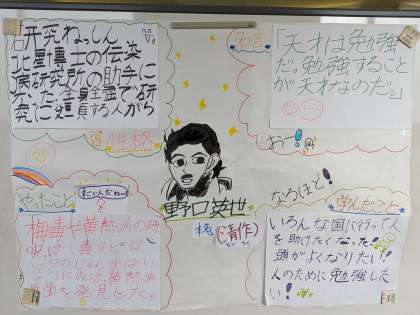 研究ねっしん
北里博士の伝染
病研究所の助手に
なった。全身全霊で研
究に没頭する人がら
性格
名言
「天才は勉強
だ。勉強すること
が天才なのだ。」
おー!
なるほど!
野口英世
(清作)
やったこと
すごい人だね〜
梅毒や黄熱病の研
病原菌を発見した。
学んだこと
いろんな国に行って人
を助けたくなった!
頭がよくなりたい!
人のために勉強した
い!